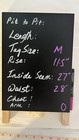 Pit to Pit:
Length:
Tag Size: M
Rise: 11.5"
Inside Seam: 27"
Waist: 28"
0